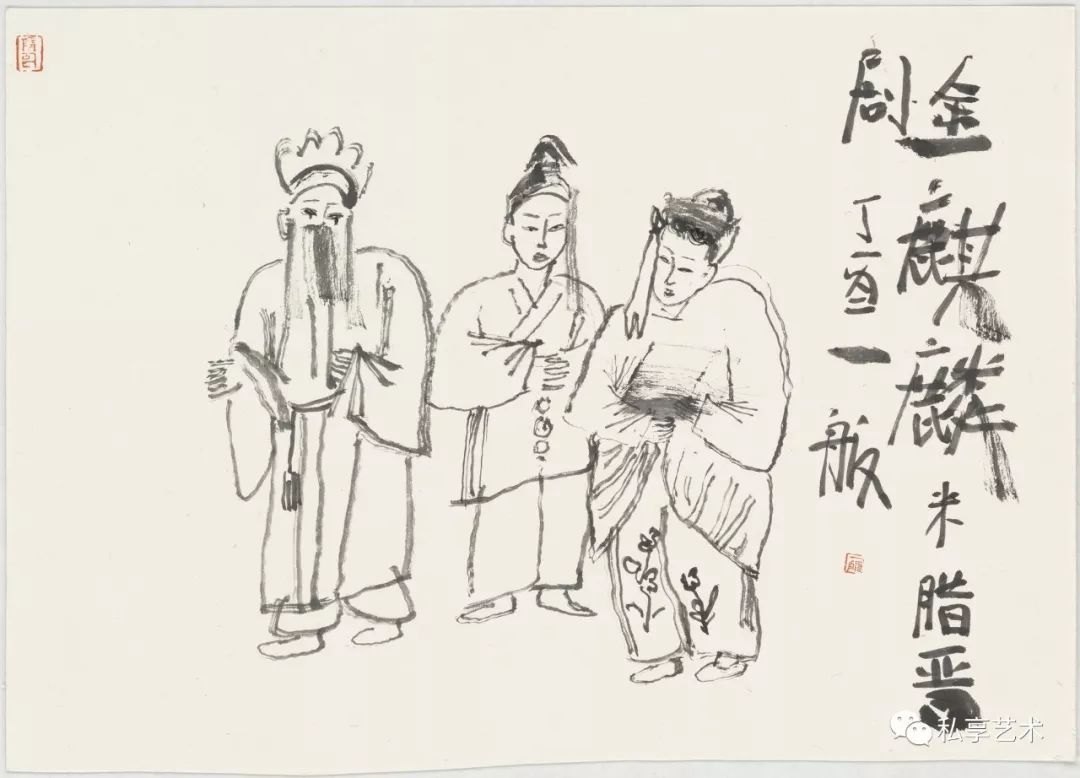 金麒麟米脂晋
剧丁酉一般
私享艺术